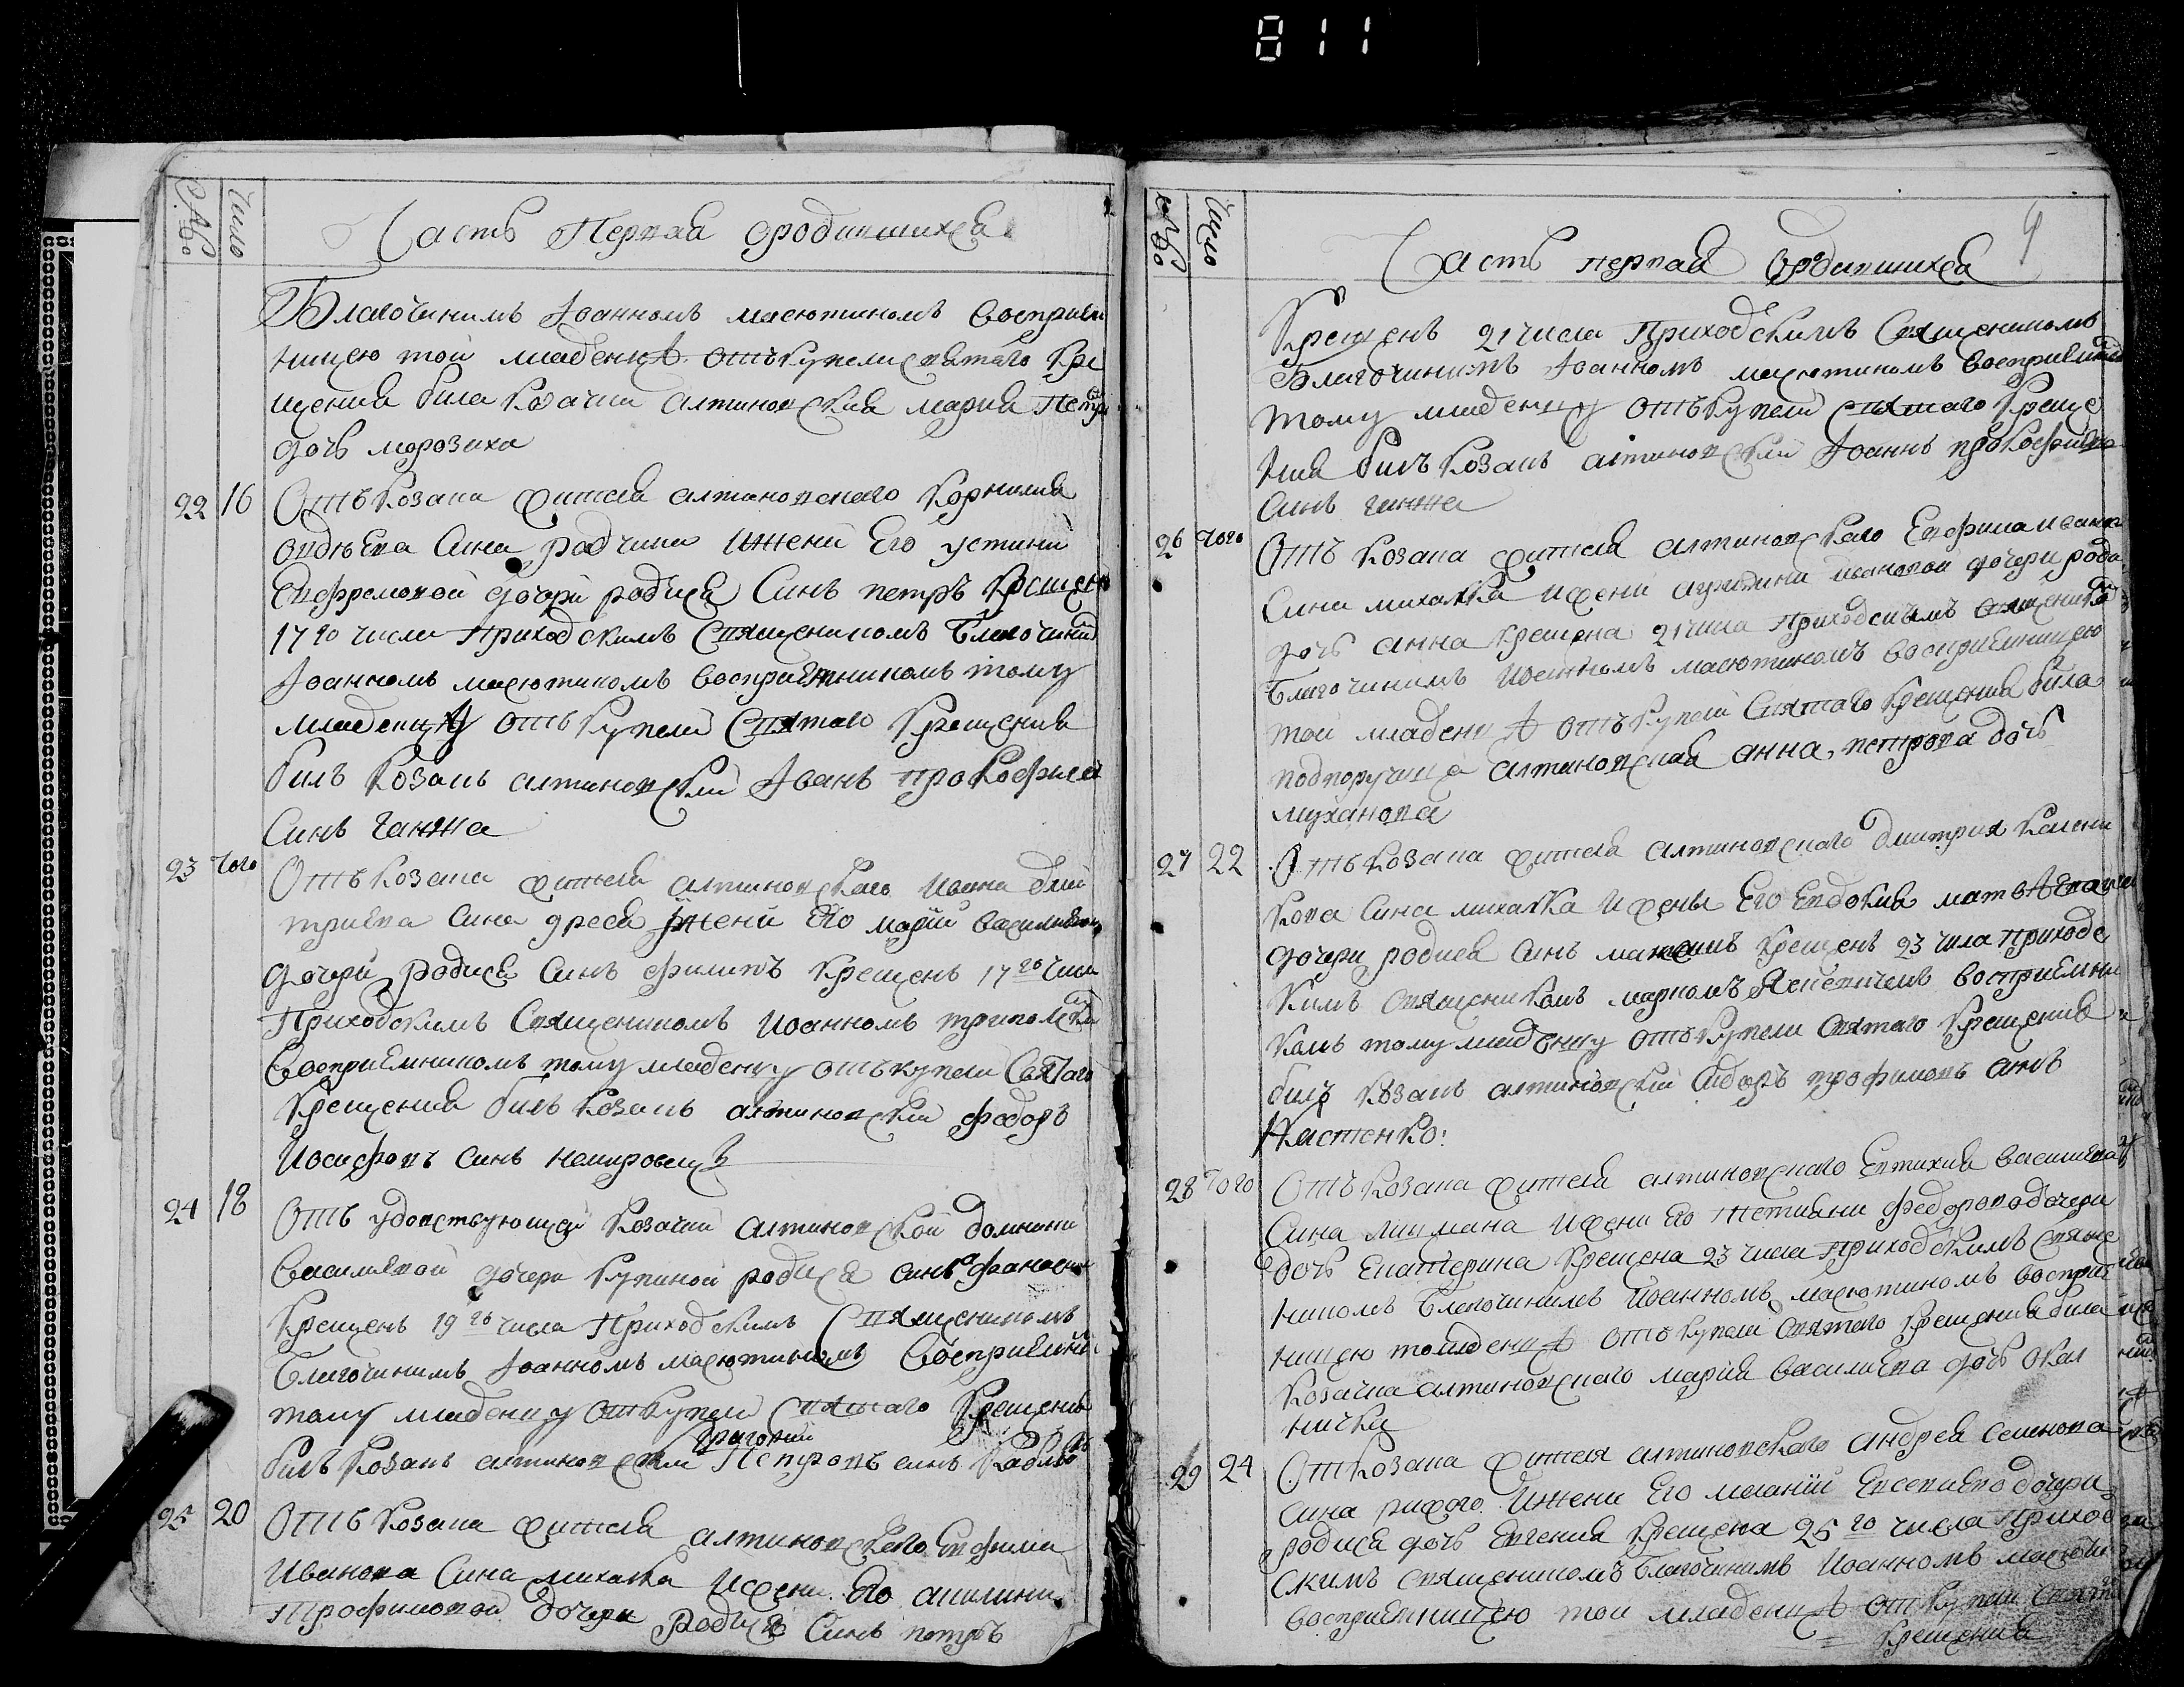 811
Число
Часть Первая ородившихся
Благочинимъ Іоанномъ масютиномъ восприем
ницею той младенцѣ отъ купели святаго кре
щения била козачка алтиновская мария Петр
дочь морозиха
22 16 Отъ козака жителя алтиновского Корнилия
сина радчика и жени Его устинии
Евфремовой дочери родися Синъ петръ крещен
17 го числа Приходскимъ Священикомъ Благочиним
Іоанномъ масютиномъ восприемникомъ тому
младенцу отъ купели Святаго Крещения
билъ козакъ алтиновский Іоанъ прокофиев
Синъ ганжа
23 того Отъ козака жителя алтиновского Иоана дми
триева Сина и жени его марии василиевой
дочери родися Синъ филипъ крещенъ 17 го числа
Приходскимъ Священикомъ Иоанномъ триполски
Восприемникомъ тому младенцу отъ купели Святаго
Крещения билъ козакъ алтиновский федоръ
Иосифовъ Синъ немировецъ
24 18 Отъ удовствующей козачки алтиновской домники
Василиевой дочери купиной родися синъ
Крещенъ 19 го числа Приходскимъ Священикомъ
Благочинимъ Іоанномъ масютиномъ Восприемник
тому младенцу отъ купели святаго Крещения
григорий
билъ козакъ алтиновский Петровъ синъ
25 20 Отъ козака жителя алтиновского Евфима
Иванова Сина михалка и жени его акилини
Трофимовой дочери Родися Синъ петръ
Число
4
Часть первая ородившихся
Крещенъ 21 числа Приходскимъ Священикомъ
Благочинимъ Іоанномъ масютиномъ восприемник
тому младенцу отъ купели святаго Креще
ния билъ козакъ алтиновский Іоаннъ прокофиевъ
Синъ ганжа
26 того Отъ козака жителя алтиновского Евфима иванов
Сина михалка и жени ивановой дочери роди
дочь анна крещена 21 числа Приходскимъ священико
Благочинимъ Иоанномъ масютиномъ восприемницею
той младенцѣ отъ купели Святаго крещения била
подпоручица алтиновская анна петрова дочь
муханова
27 22 Отъ козака жителя алтиновского дмитрия Калени
кова Сина михалка и жены Его Евдокия матвѣевой
дочери родися синъ максимъ крещенъ 23 числа приходс
кимъ священикомъ маркомъ Яснепичемъ восприемни
комъ тому младенцу отъ купели святаго Крещения
билъ козакъ алтиновский Сидоръ трофимовъ синъ
28 того Отъ козака жителя алтиновского Евтихия василиева
Сина и жени его Тетияни федоровой дочери
дочь Екатерина крещена 23 числа приходскимъ свяще
никомъ Благочинимъ Иоанномъ масютиномъ восприе
ницею той младенцѣ отъ купели святаго крещения била
козачка алтиновского мария василиева дочь
29 24 Отъ козака жителя алтиновского андрея Семенова
сина рижого и жени Его мелании Евсевиевой дочери
родися дочь Евгения крещена 25 го числа Приход
скимъ священикомъ Благочинимъ Иоанномъ масюти
восприемницею той младенцѣ отъ купели святаго
крещения